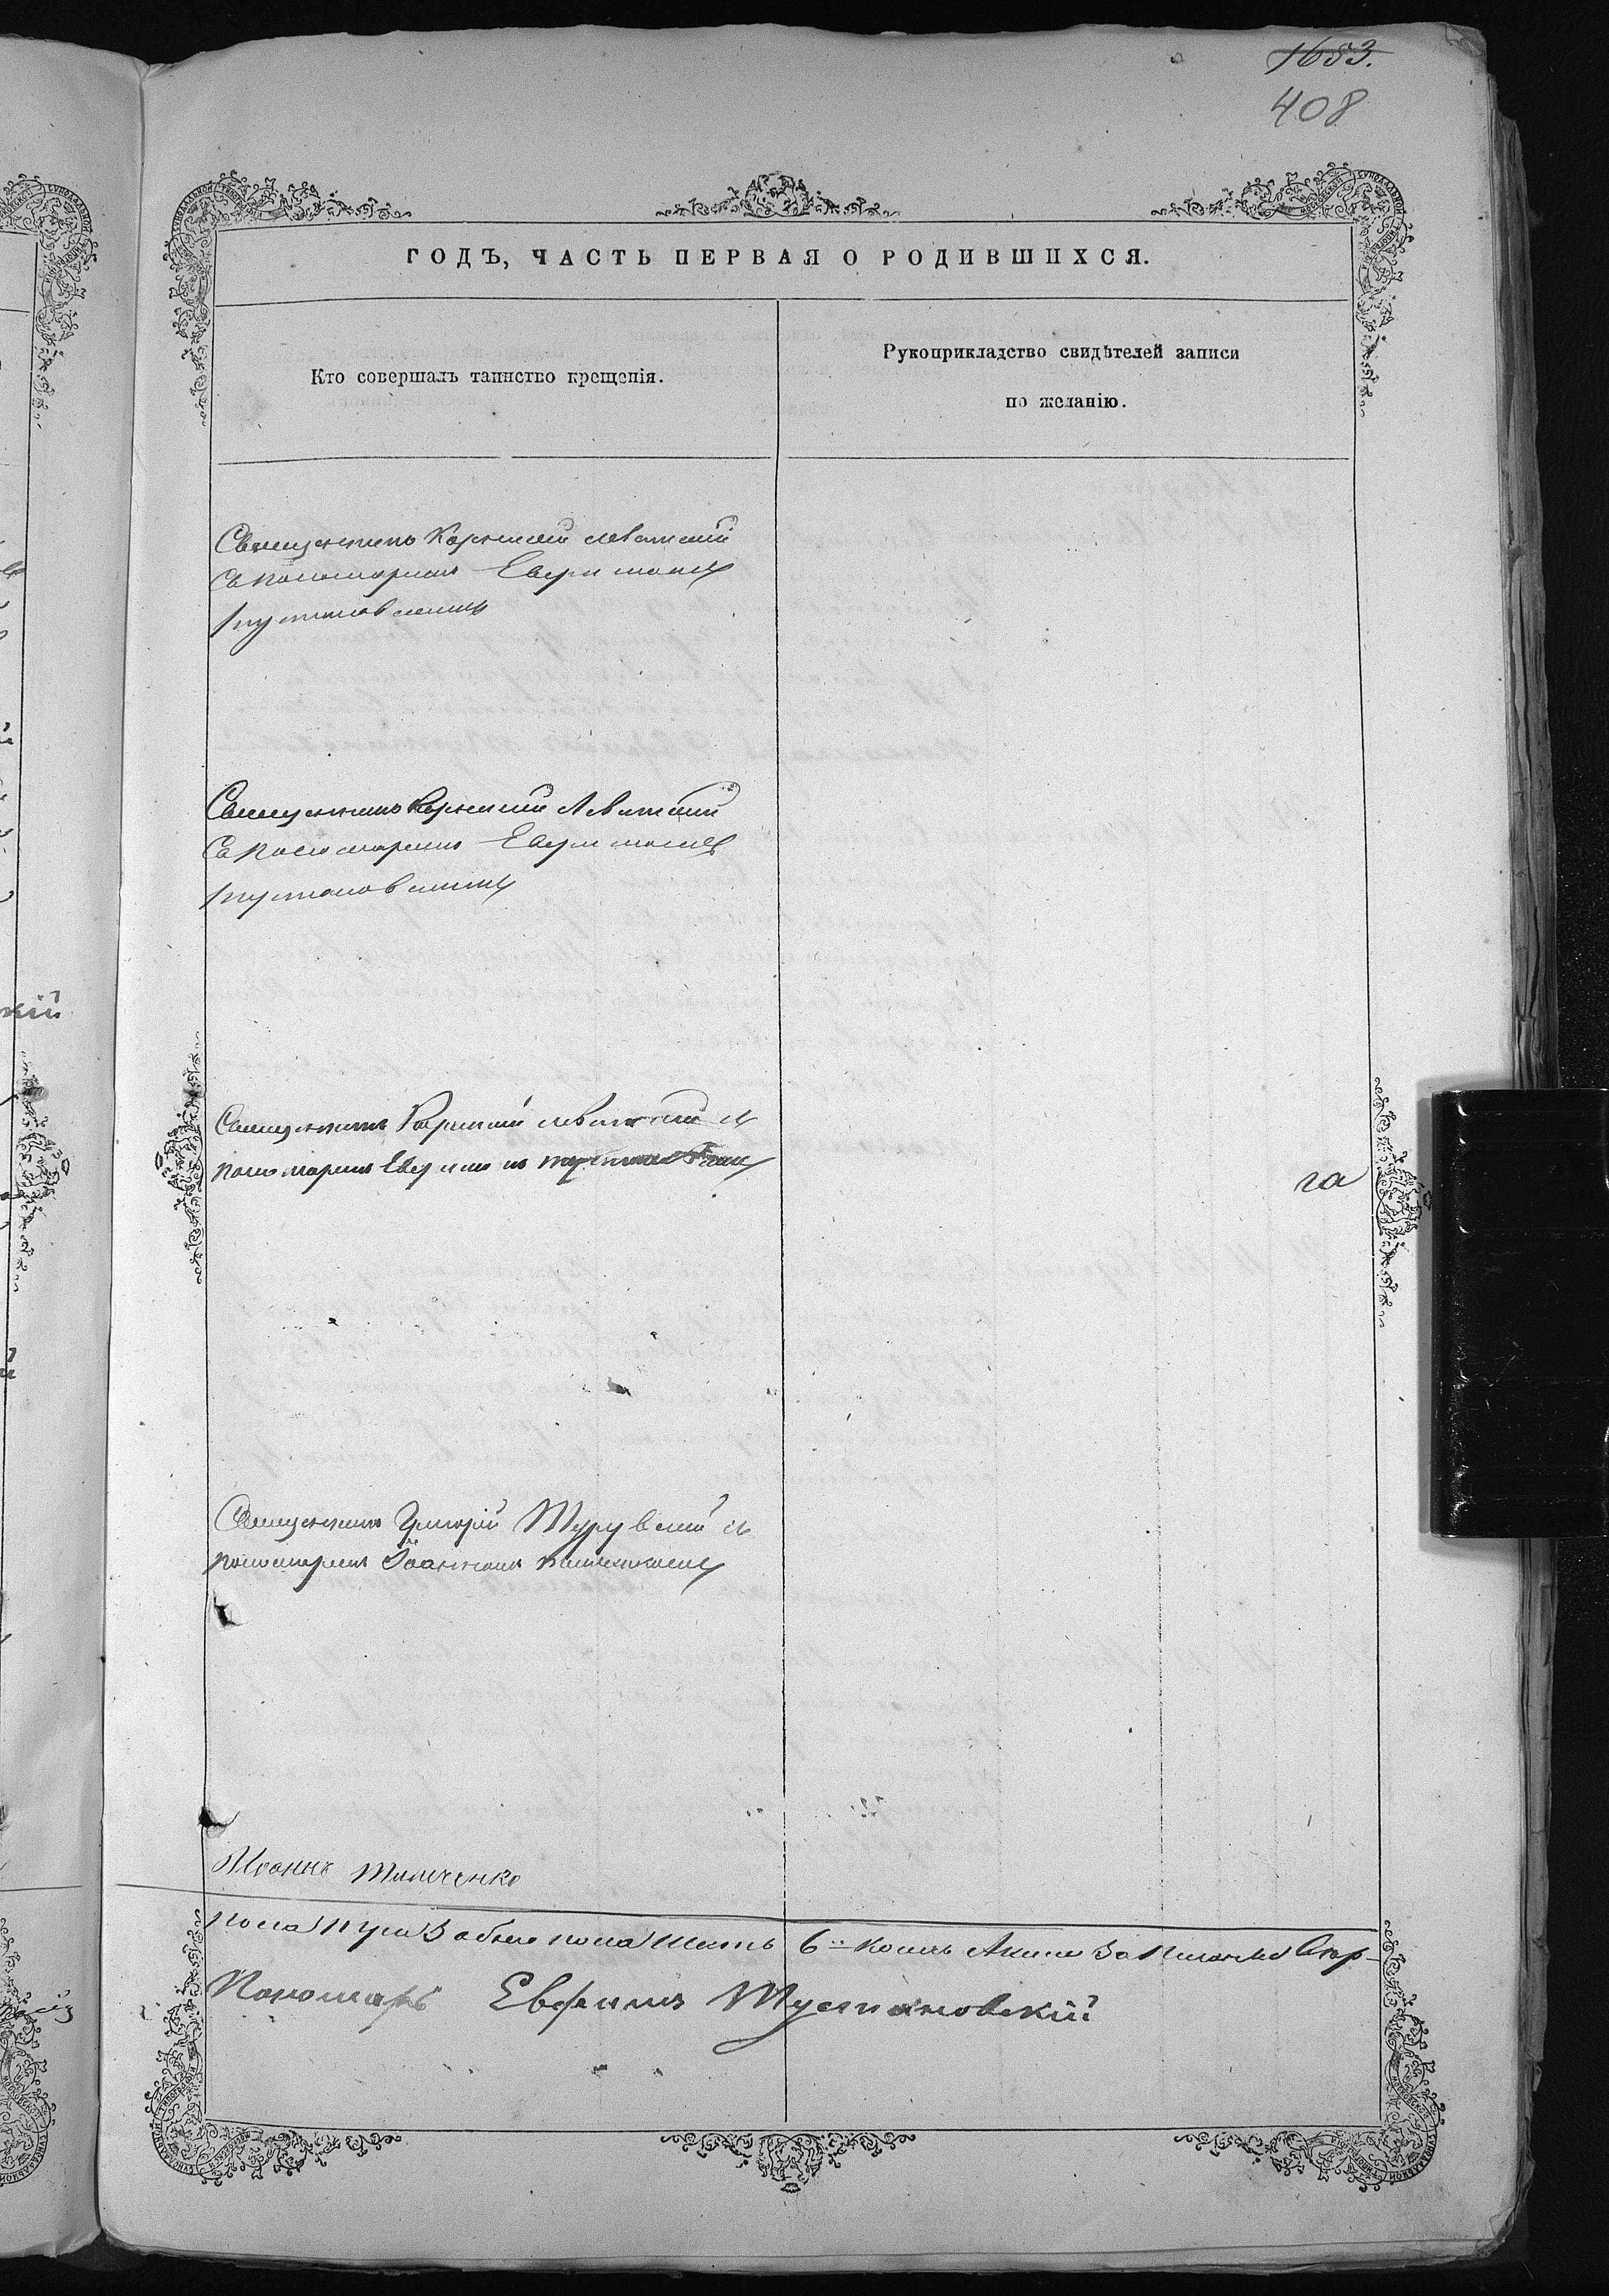 1683.
408
ГОДЪ, ЧАСТЬ ПЕРВАЯ О РОДИВШИХСЯ.
Кто совершалъ таинство крещенія.
Рукоприкладство свидѣтелей записи
по желанію.
Священникъ Корнилій Левитскій
съ пономаремъ Евфиміемъ
Тустановскимъ
Священникъ Корнилій Левитскій
съ пономаремъ Евфиміемъ
Тустановскимъ
Священникъ Корнилій Левитскій съ
пономаремъ Евфиміемъ Тустановскимъ
га
Священникъ Григорій Турувскій съ
пономаремъ Іоанномъ
Иоаннъ Тимченко
пола обоего пола шесть 6
Пономарь Евфимъ Тустановскій